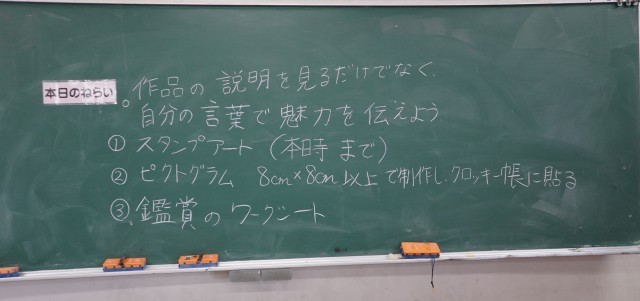 本日のねらい
。作品の説明を見るだけでなく、
自分の言葉で魅力を伝えよう
① スタンプアート (本時まで)
② ピクトグラム 8cm×8cm以上で制作し、クロッキー帳に貼る
③ 鑑賞のワークシート